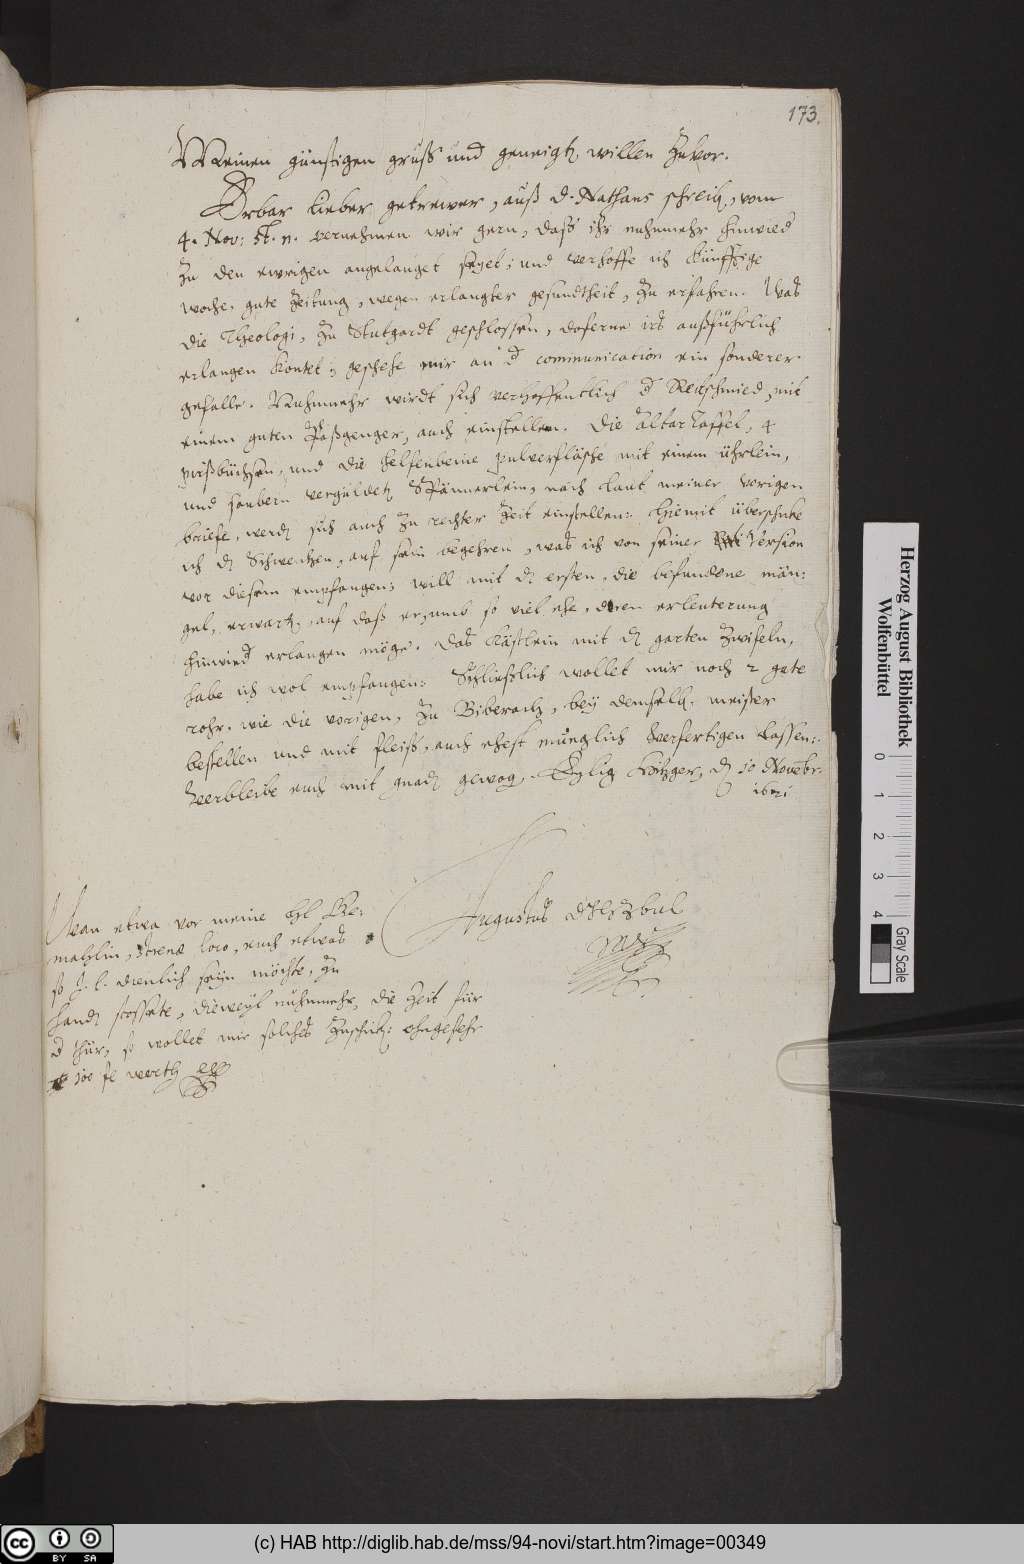 173.
Meinen günstigen gruß und geneigt. willen zuvor.
Erbar lieber getrewer, auß D. Nathans schreib., vom
4. Nov: st. n. vernehmen wir gern, daß ihr nuhnmehr hinwied
zu den ewrigen angelanget seyet; und verhoffe ich künfftige
woche, gute zeitung, wegen erlangter gesundtheit, zu erfahren. Was
die Theologi, zu Stutgardt geschlossen, doferne irs außführlich
erlangen köntet; geschehe mir an d communication ein sonderer
gefalle. Nuhnmehr wirdt sich verhoffentlich d Reutschmied, mit
einem guten Paßgenger, auch einstellen. Die altar Taffel, 4
pirßbüchsen, und die helfenbeine pulverfläsche mit einem ührlein,
und saubern verguldet. Spännerlein, nach laut meiner vorigen
briefe, werd. sich auch zu rechter zeit einstellen: Hiemit überschicke
ich d. Schwenthen, auf sein begehren, was ich von seiner Version
vor diesem empfangen; will mit d. ersten, die befundene män:
gel, erwart., auf daß er, umb so viel ehe, deren erleuterung
hinwied erlangen möge. Das kästlein mit d. garten zwifeln,
habe ich wol empfangen: Schließlich wollet mir noch 2 gute
rohr, wie die vorigen, zu Biberach, bey demselb. meister
bestellen und mit fleiß, auch ehest müeglich verfertigen lassen:
Verbleibe euch mit gnad. gewog. Eylig Hitzger, d. 10 Novebr:
1621
Augustus D H Z B u L
mpp
Wan etwa vor meine hl. Ge:
mahlin, euch etwas
so J. L. dienlich seyn möchte, zu
hand. stossete, dieweyl nuhnmehr, die Zeit für
d thür, so wollet mir solches zuschick: ohngefehr
100 fl werth
Herzog August Bibliothek
Wolfenbüttel
0 1 2 3 4
Gray Scale
cc BY SA
(c) HAB http://diglib.hab.de/mss/94-novi/start.htm?image=00349